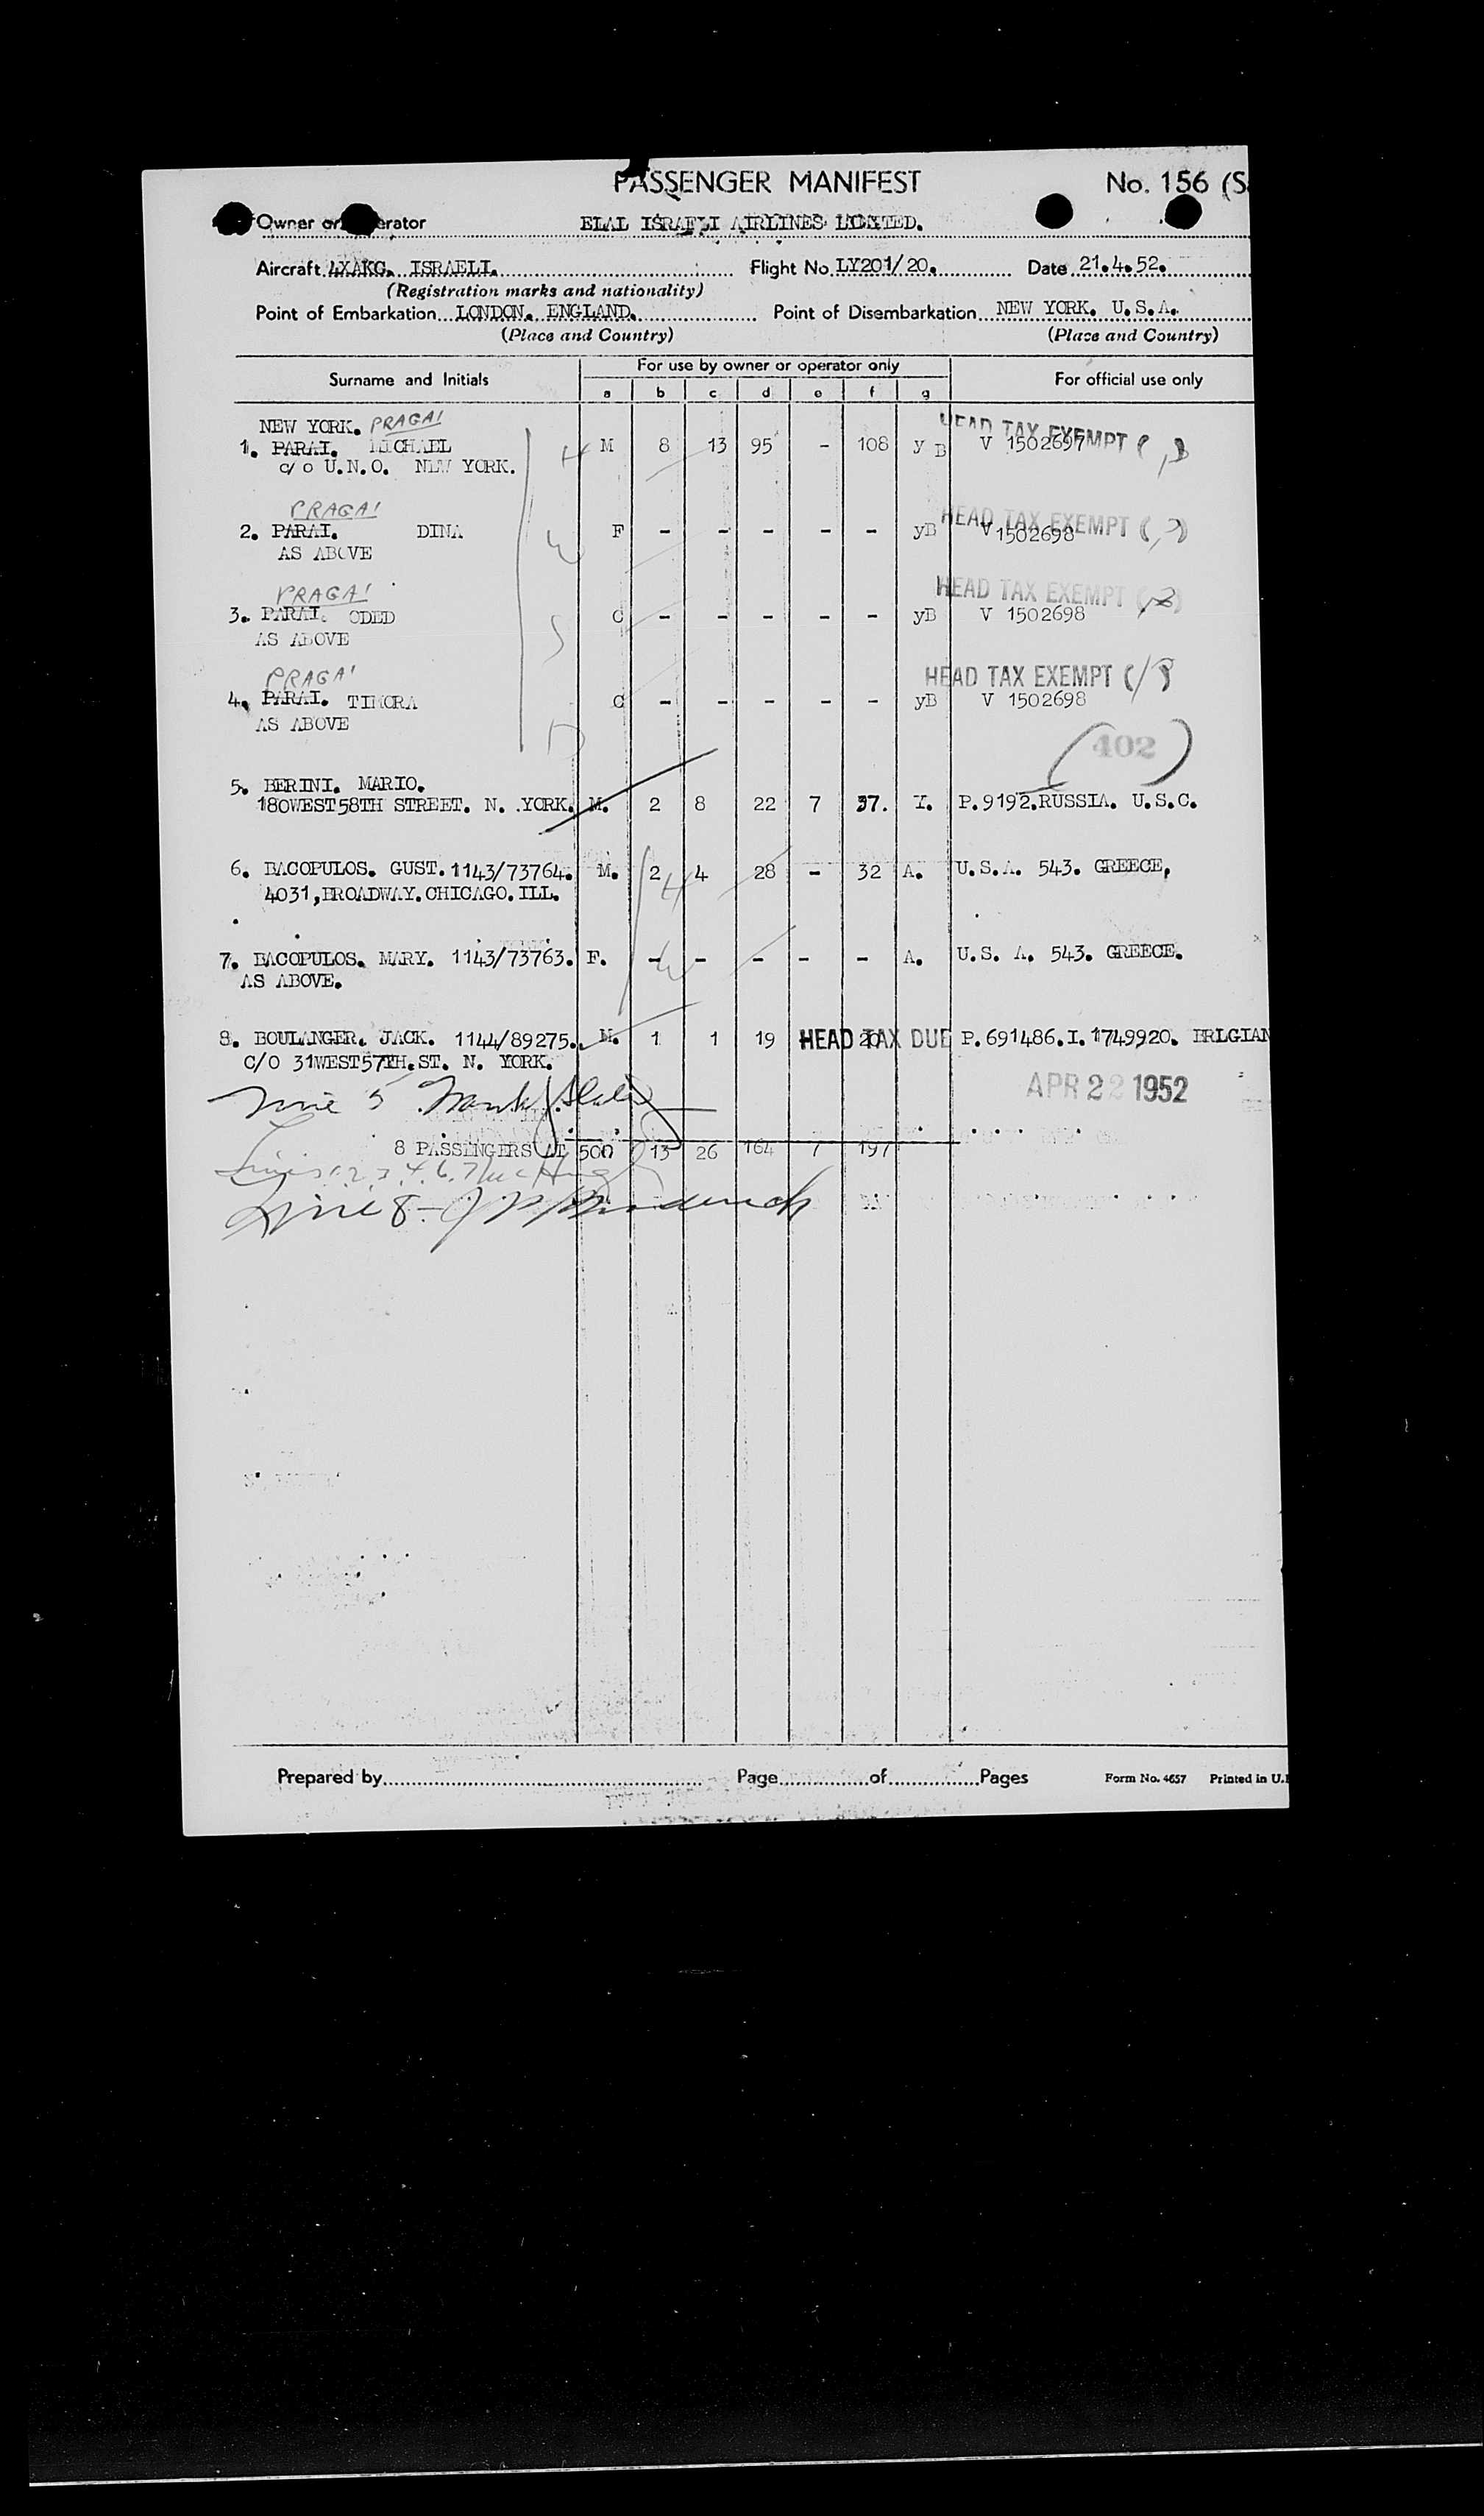 PASSENGER MANIFEST No. 156 (S
Owner or erator ELAL ISRAELI AIRLINES LIMITED.
Aircraft 4XAKC. ISRAELI. Flight No. LY201/20. Date 21.4.52.
(Registration marks and nationality)
Point of Embarkation LONDON. ENGLAND. Point of Disembarkation NEW YORK. U.S.A.
(Place and Country) (Place and Country)
For use by owner or operator only
Surname and Initials For official use only
a b c d e f g
NEW YORK. PRAGAI HEAD TAX EXEMPT
1. PARAI. MICHAEL M 8 13 95 - 108 y B V 1502697
c/o U.N.O. NEW YORK. H
PRAGAI HEAD TAX EXEMPT
2. PARAI. DINA F - - - - - yB V 1502698
AS ABOVE W
PRAGAI HEAD TAX EXEMPT
3. PARAI. ODED C - - - - - yB V 1502698
AS ABOVE S
PRAGAI HEAD TAX EXEMPT
4. PARAI. TIMORA C - - - - - yB V 1502698
AS ABOVE D
(402)
5. BERINI. MARIO.
180WEST58TH STREET. N. .YORK. M. 2 8 22 7 37. Y. P.9192.RUSSIA. U.S.C.
6. BACOPULOS. GUST.1143/73764. M. 2 4 28 - 32 A. U.S.A. 543. GREECE,
4031,BROADWAY.CHICAGO.ILL. H
7. BACOPULOS. MARY. 1143/73763. F. - - - - - A. U.S. A. 543. GREECE.
AS ABOVE. W
8. BOULANGER. JACK. 1144/89275. M. 1 1 19 HEAD TAX DUE 20 P.691486.I.1749920. BELGIAN
C/O 31WEST57TH.ST. N. YORK.
APR 22 1952
8 PASSENGERS AT 500 13 26 164 7 197
Line 8-
Prepared by Page of Pages Form No. 4657 Printed in U.